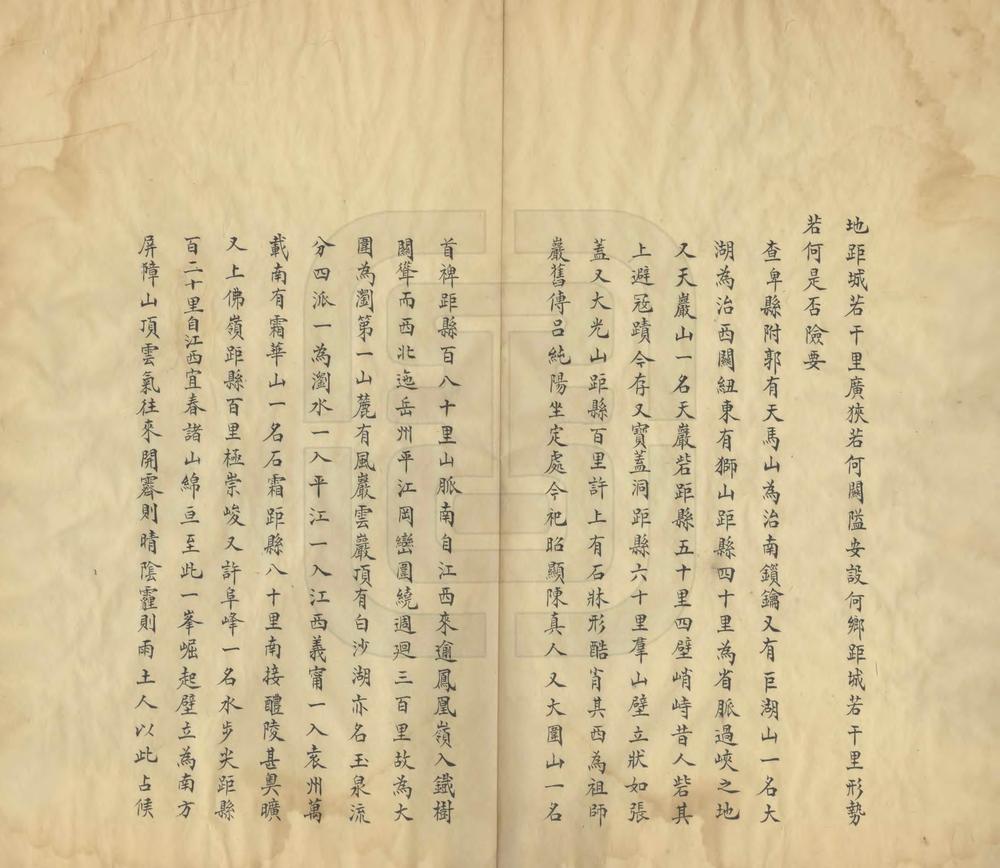 地距城若干里廣狹若何關隘安設何鄉距城若干里形勢
若何是否險要
查卑縣附郭有天馬山為治南鎖鑰又有巨湖山一名大
湖為治西關紐東有獅山距縣四十里為省脈過峽之地
又天巖山一名天巖砦距縣五十里四壁峭峙昔人砦其
上避冦蹟今存又寶蓋洞距縣六十里羣山壁立狀如張
蓋又大光山距縣百里許上有石牀形酷肖其西為祖師
巖舊傳呂純陽坐定處今祀昭顯陳真人又大圍山一名
首禆距縣百八十里山脈南自江西來逾鳳凰嶺入鐵樹
關聳而西北迤岳州平江岡巒圍繞週廻三百里故為大
圍為瀏第一山麓有風巖雲巖頂有白沙湖亦名玉泉流
分四派一為瀏水一入平江一入江西義甯一入袁州萬
載南有霜華山一名石霜距縣八十里南接醴陵甚奥曠
又上佛嶺距縣百里極崇峻又許阜峰一名水步尖距縣
百二十里自江西宜春諸山綿亘至此一峯崛起壁立為南方
屏障山頂雲氣往來開霽則晴陰霾則雨土人以此占候